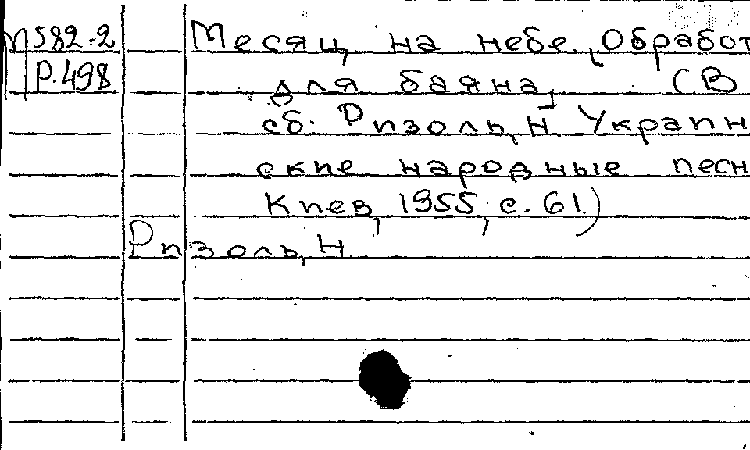 М582-2 Месяц на небе. Обработ
Р.498 для баяна. (В
сб: Ризоль, Н. Украин
ские народные песн
Киев, 1955, с. 61)
Ризоль, Н.